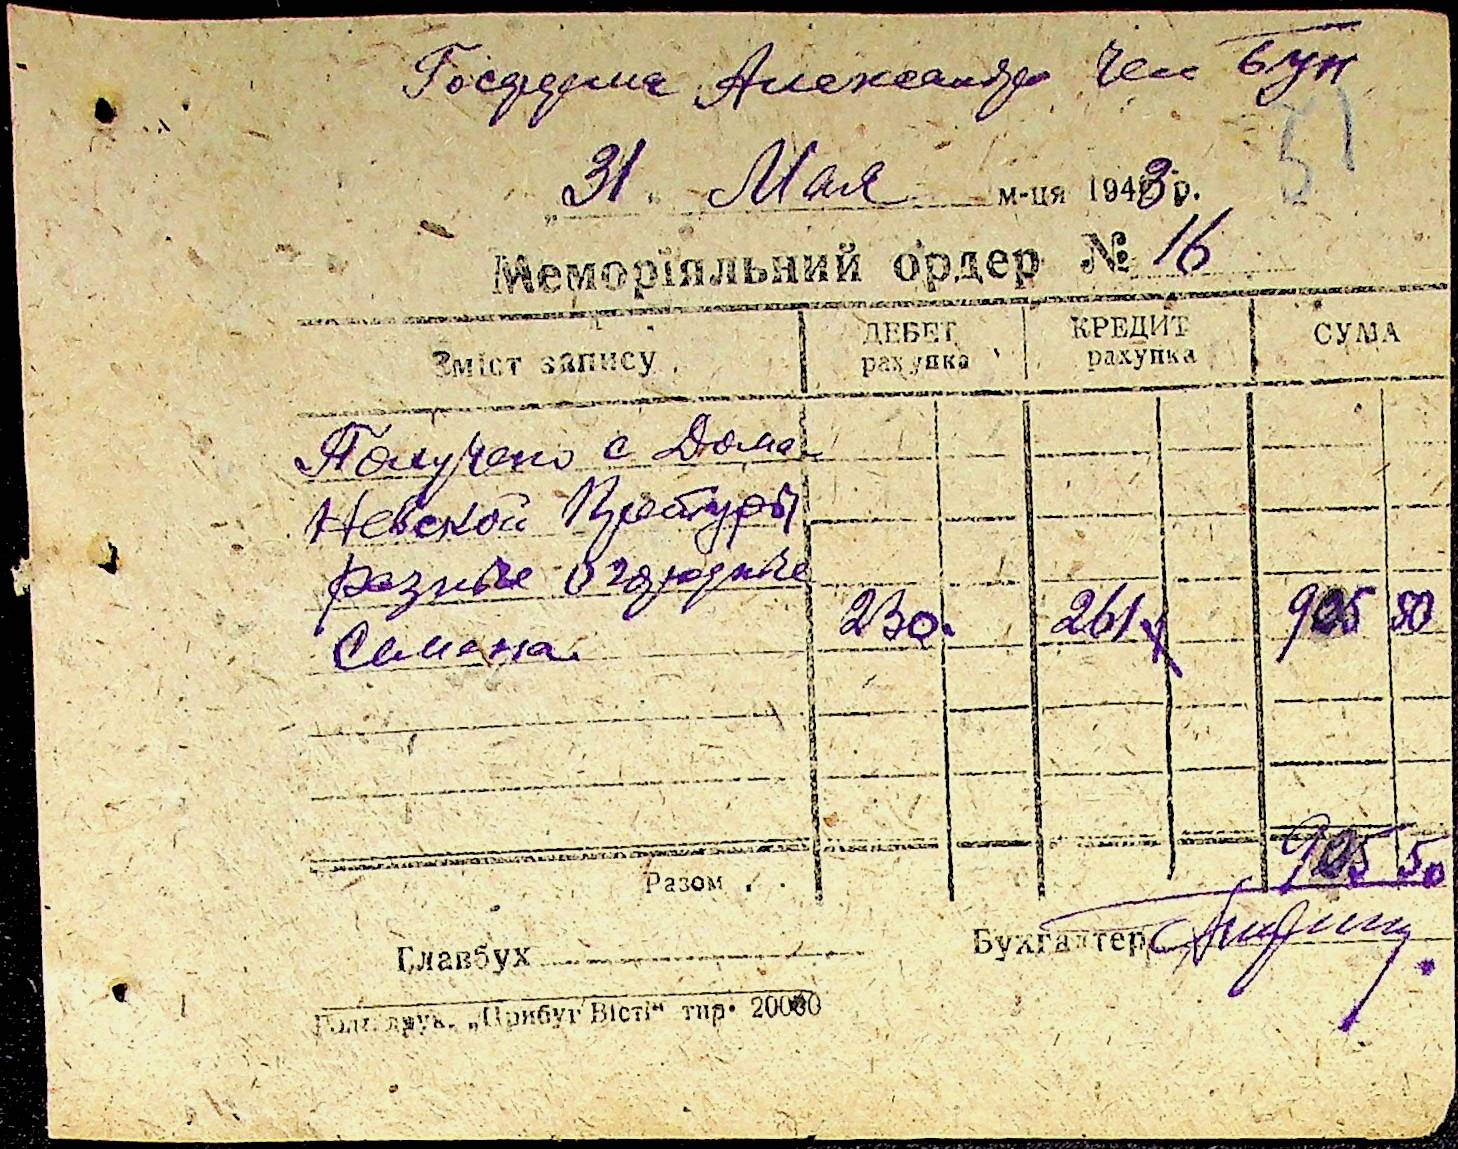 Госферма Александр
51
"31" Мая м-ця 1943 р.
Меморіяльний ордер № 16
Зміст запису ДЕБЕТ рахунка КРЕДИТ рахунка СУМА
Получено с Дома
Невской
разные огородные
Семена. 230. 261 905 50
905 50
Разом
Главбух Бухгалтер
друк. „Прибуг Вісті“ тир. 20000